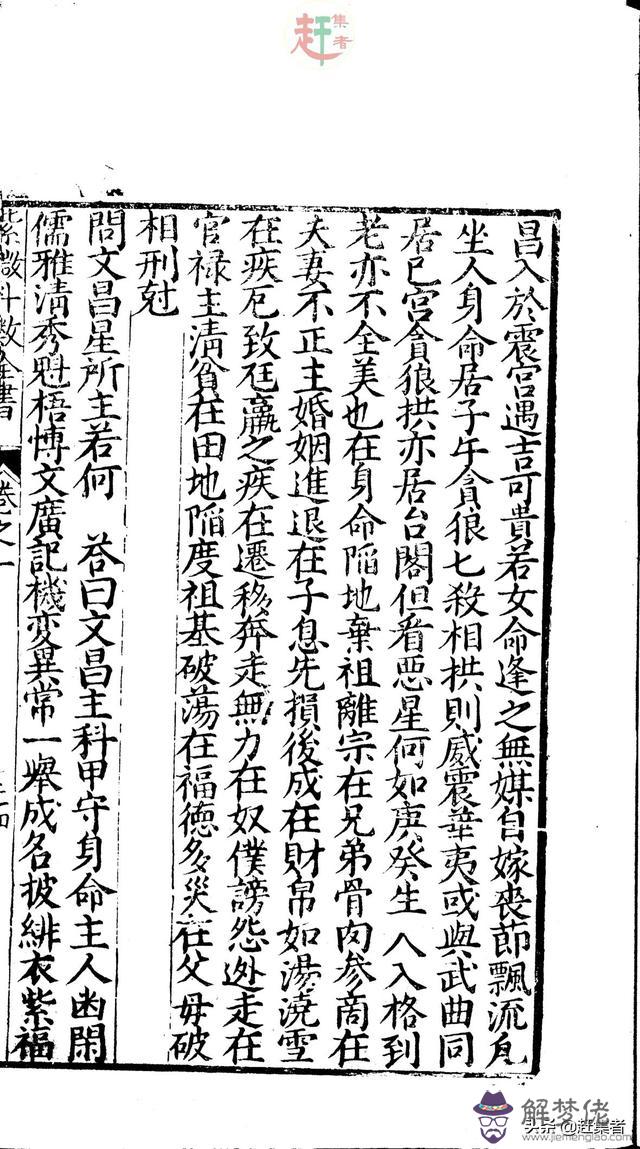 赶集者
昌入於震宫遇吉可貴若女命逢之無媒自嫁丧節飄流凡
坐人身命居子午貪狼七殺相拱則威震華夷或與武曲同
居巳宫貪狼拱亦居台閣但看惡星何如庚癸生人入格到
老亦不全美也在身命陷地棄祖離宗在兄弟骨肉参商在
夫妻不正主婚姻進退在子息先損後成在財帛如湯澆雪
在疾厄致尫羸之疾在遷移奔走無力在奴僕謗怨迯走在
官禄主清貧在田地陷度祖基破蕩在福德多災在父母破
相刑尅
問文昌星所主若何 荅曰文昌主科甲守身命主人幽閑
儒雅清秀魁梧博文廣記機変異常一舉成名披緋衣紫福
紫微斗数全書 卷之一
解梦佬
头条@赶集者
www.jiemenglao.com